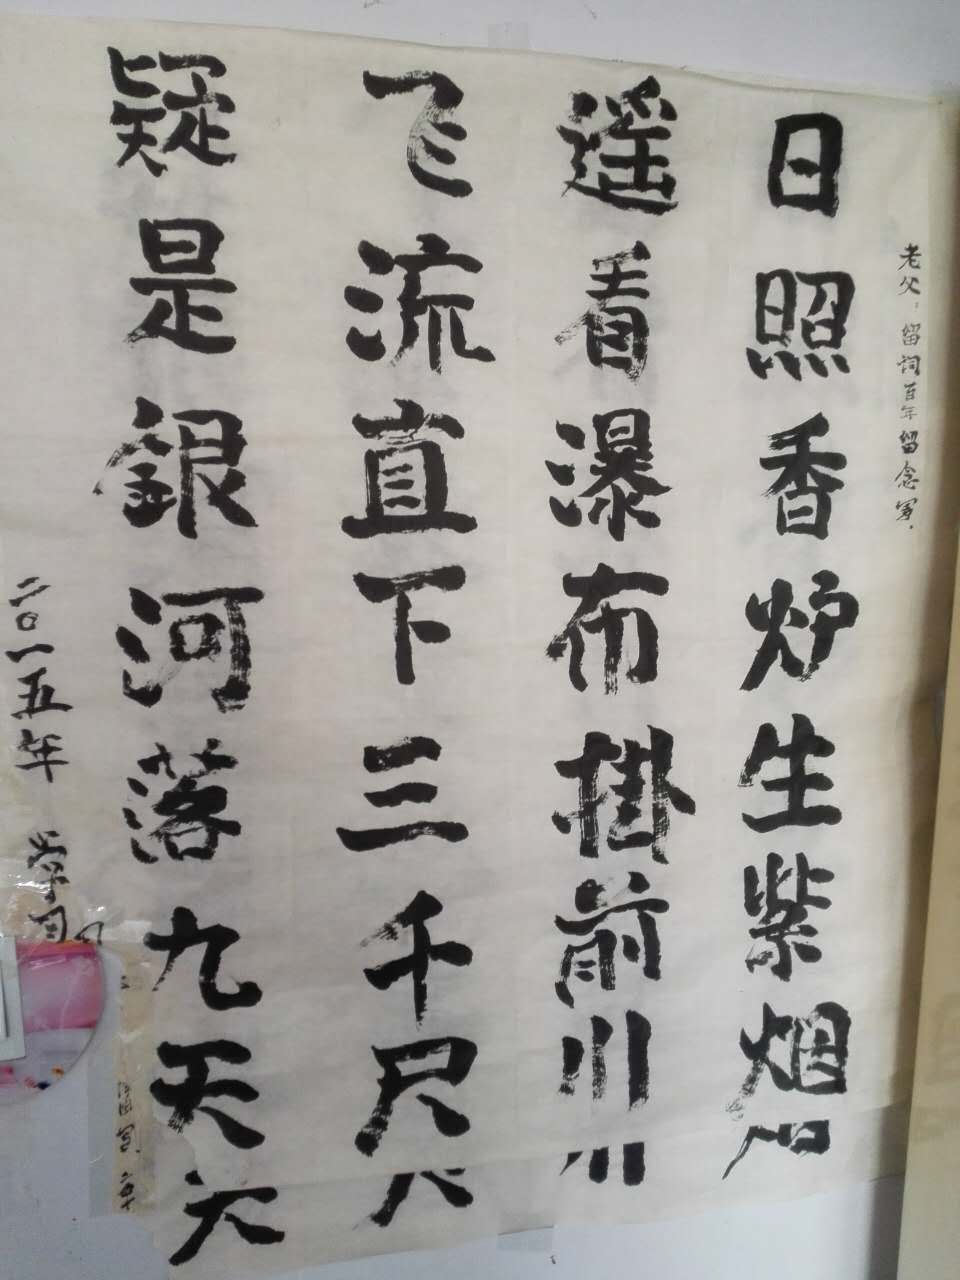 老父：留词百年留念军.
日照香炉生紫烟
遥看瀑布掛前川
飞流直下三千尺
疑是銀河落九天
二〇一五年